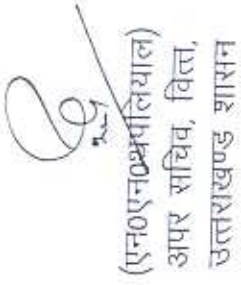 (एन०एन०थपलियाल)
अपर सचिव, वित्त,
उत्तराखण्ड शासन